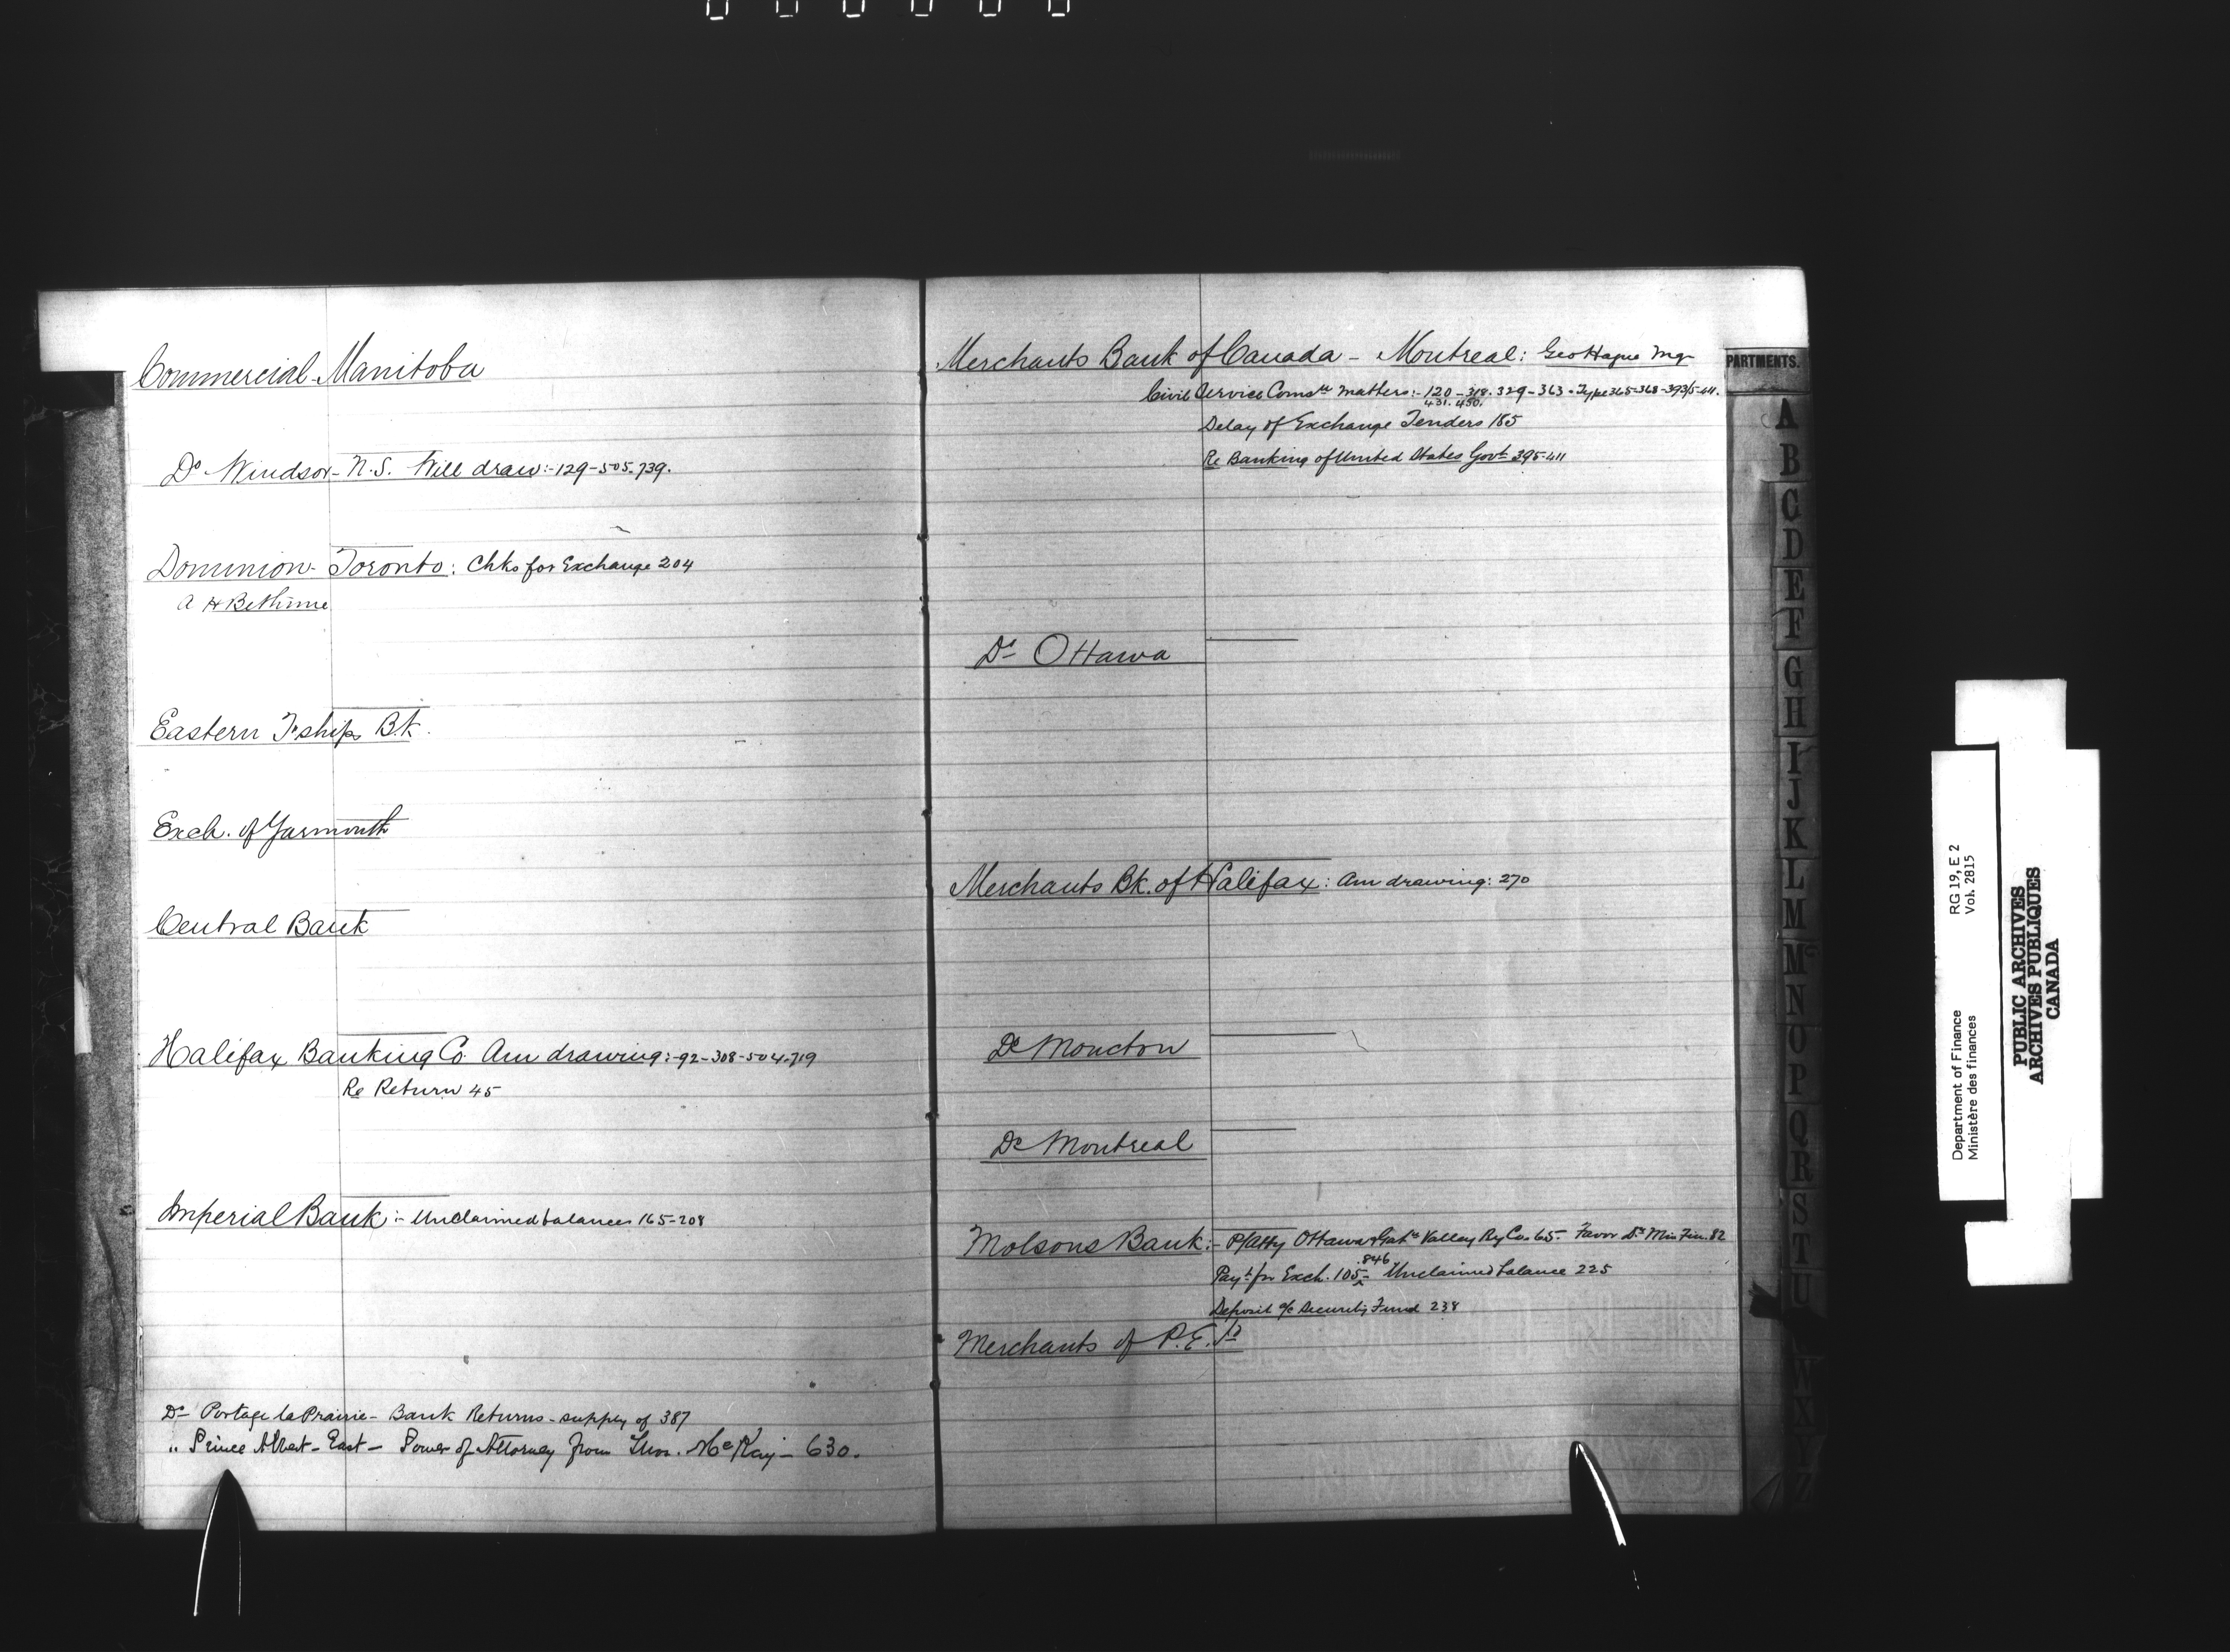 Commercial Manitoba
Do Windsor - N.S. Will draw:-129-505.739.
Dominion - Toronto: Chks for Exchange 204
A H Bethune
Eastern T'ships Bk.
Exch. of Yarmouth
Central Bank
Halifax Banking Co. Am drawing:-92-308-504.719
Re Return 45
Imperial Bank:- Unclaimed balances 165-208
Do Portage la Prairie - Bank Returns - supply of 387
" Prince Albert - East - Power of Attorney from Thos. McKay - 630.
Merchants Bank of Canada - Montreal: Geo Hague Mgr
Civil Service Comtee matters:-120-318.329-363-Type 365-368-
431. 450.
Delay of Exchange Tenders 185
Re Banking of United States Govt 395-411
Do Ottawa
Merchants Bk. of Halifax: Am drawing: 270
Do Moncton
Do Montreal
Molsons Bank:- P/Atty Ottawa & Gatu Valley Ry Co. 65- Favor Dr Min Fin. 82
.846
Payt for Exch. 105- Unclaimed balance 225
Deposit a/c Security Fund 238
Merchants of P.E. Id
PARTMENTS.
A
B
C
D
E
F
G
H
I
J
K
L
M
Mc
N
O
P
Q
R
S
T
U
Department of Finance RG 19, E 2
Ministère des finances Vol. 2815
PUBLIC ARCHIVES
ARCHIVES PUBLIQUES
CANADA